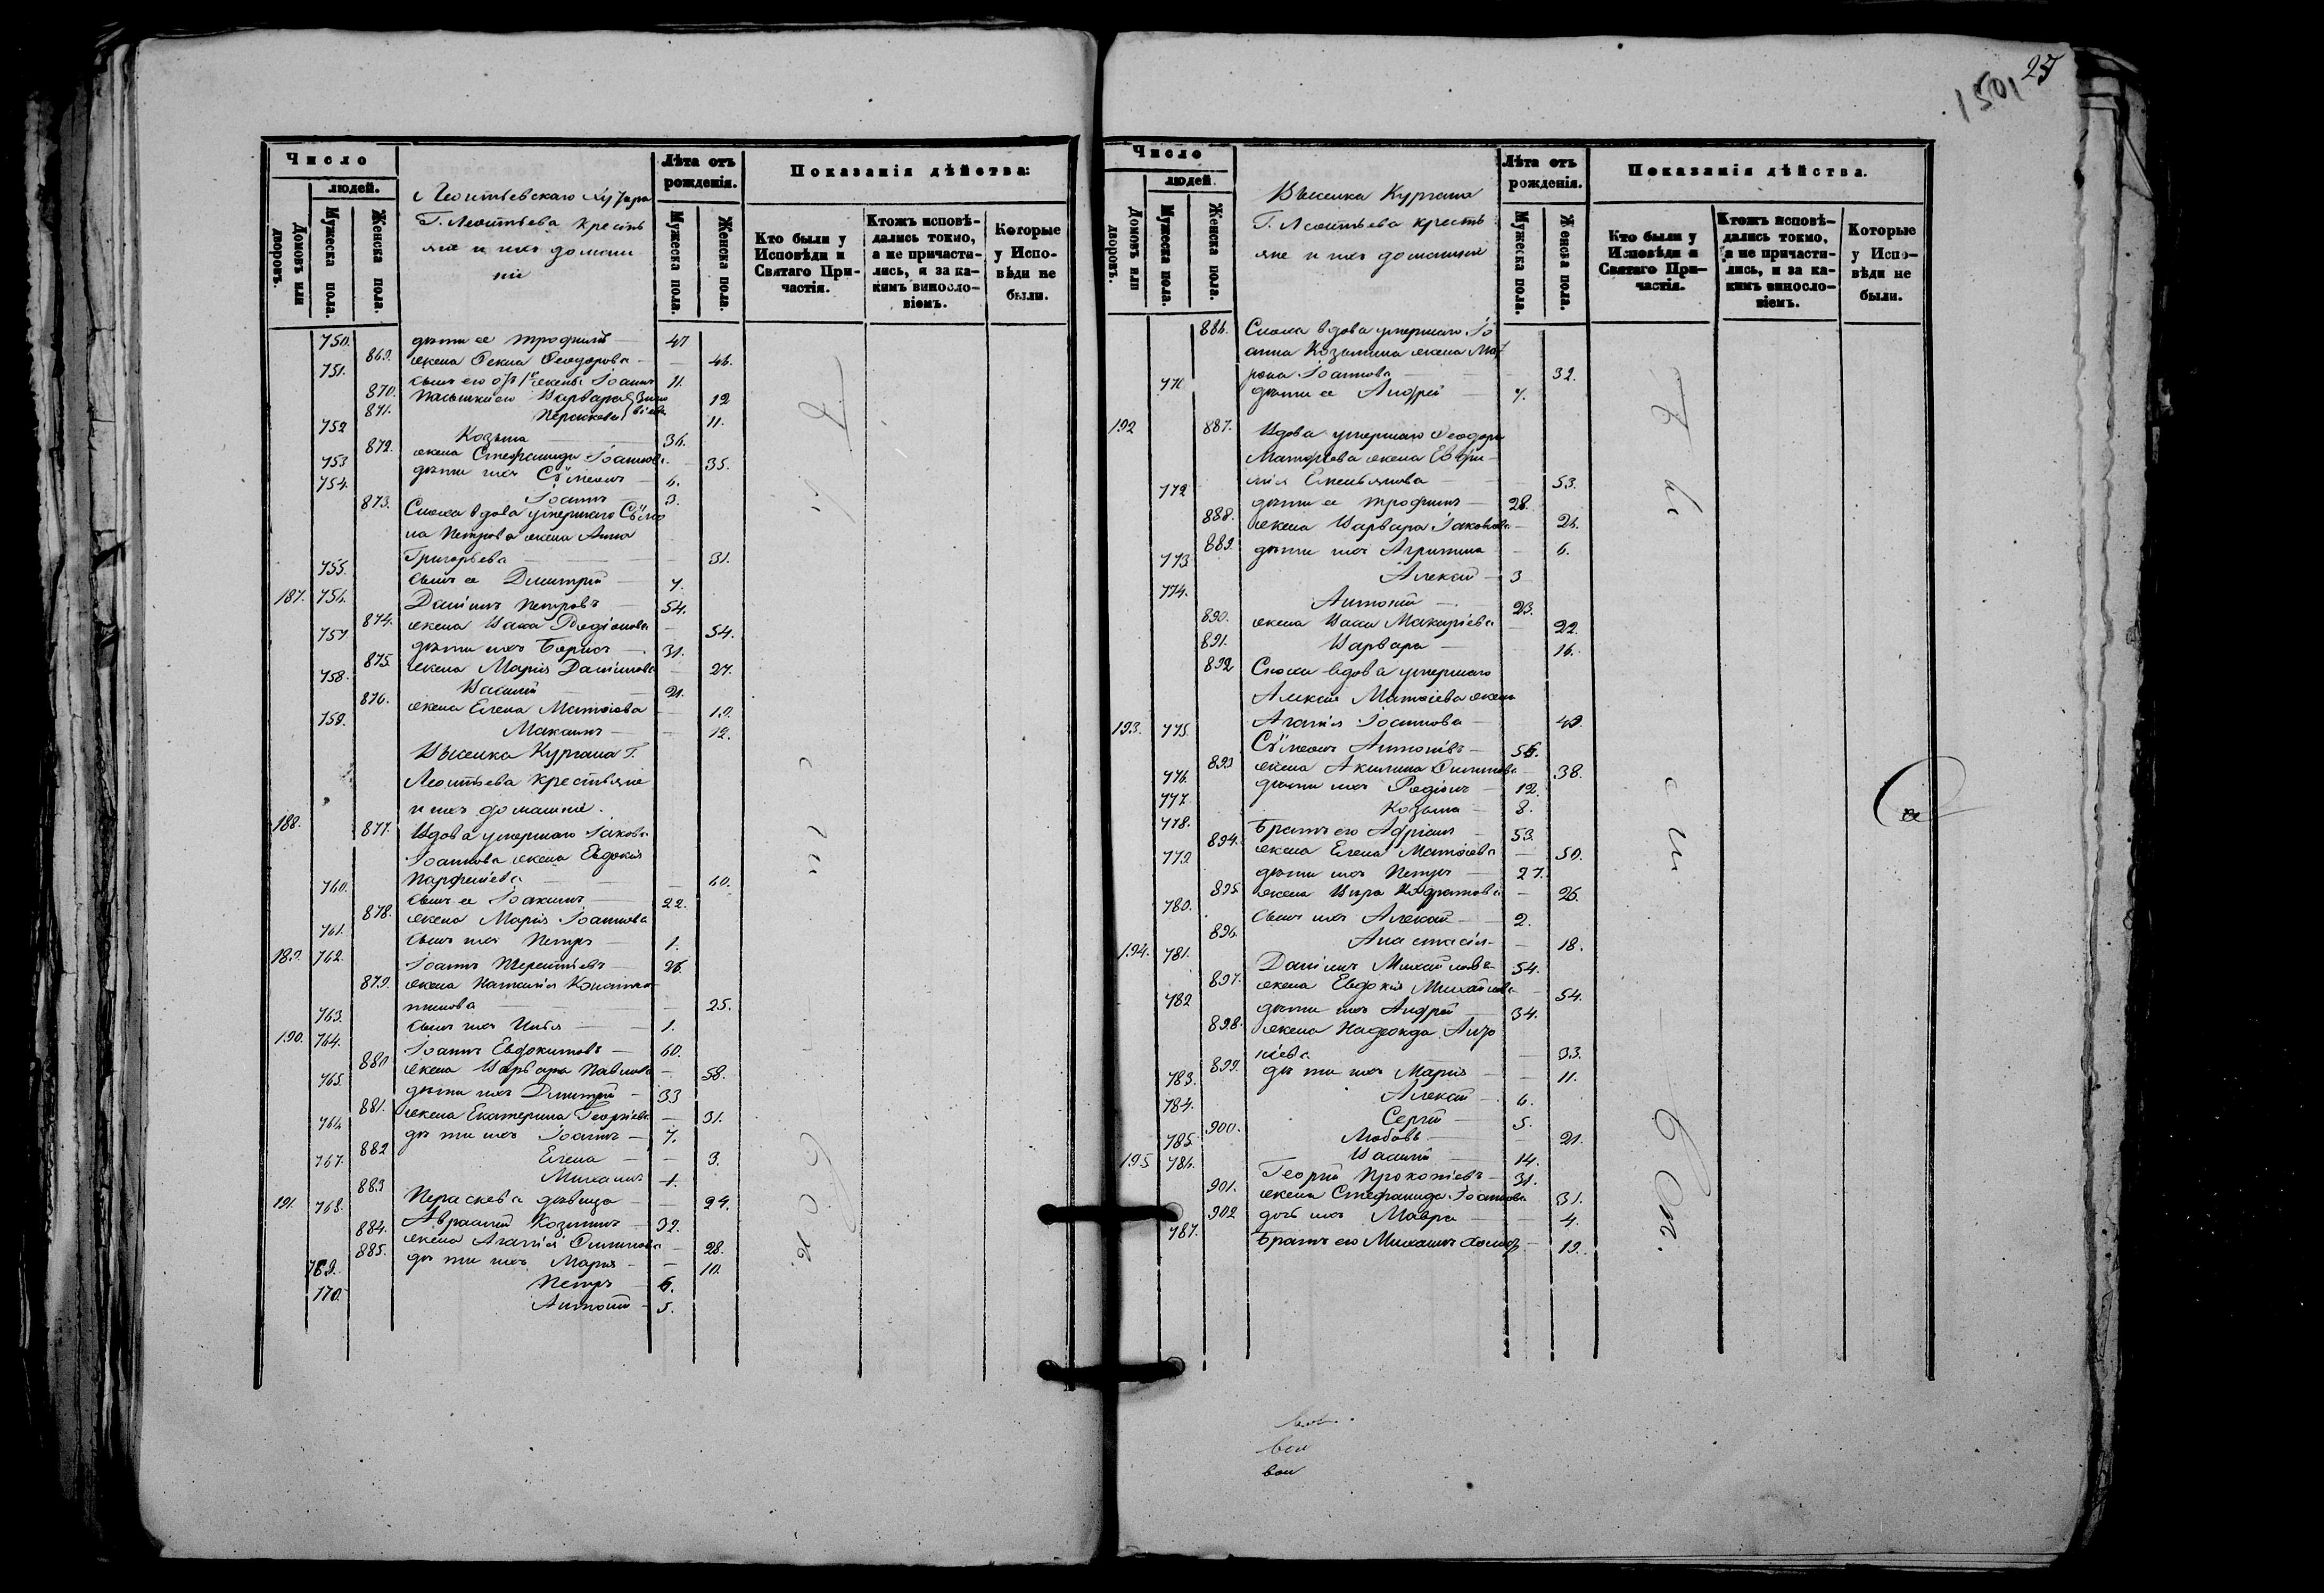 27
1501
Число
людей.
Домовъ или дворовъ.
Мужеска пола.
Женска пола.
Леонтьевскаго Хутора
Г. Леонтьева крестья
яне и ихъ домаш
ніе
Лѣта отъ рожденія.
Мужеска пола.
Женска пола.
Показанія дѣйства:
Кто были у Исповѣди и Святаго Причастія.
Ктожъ исповѣдались токмо, а не причастились, и за какимъ винословіемъ.
Которые у Исповѣди не были.
750. дѣти ее Трофимъ — 47
869. жена Фекла Феодорова — 46.
751. сынъ его отъ 1й жены Іоаннъ 11.
870. Пасынки его Варвара 12
871. Параскева 11.
752 Козьма — 36.
872. жена Стефанида Іоаннова — 35.
753 дѣти ихъ Сѵмеонъ — 6.
754. Іоаннъ — 3.
873. Сноха вдова умершаго Сѵмео
на Петрова жена Анна
Григорьева — 31.
755. сынъ ее Димитрій — 7.
187. 756. Даніилъ Петровъ — 54.
874. жена Васса Родіонова — 54.
757. дѣти ихъ Борисъ — 31.
875. жена Марія Даніилова — 27.
758. Василій — 21.
876. жена Елена Матѳіева — 19.
759. Максимъ — 12.
Выселка Кургана Г.
Леонтьева крестьяне
и ихъ домашніе.
188. 877. Вдова умершаго Іакова
Іоаннова жена Евдокія
Парфеніева — 60.
760. сынъ ее Іоакимъ — 22.
878. жена Марія Іоаннова
761. сынъ ихъ Петръ — 1.
189. 762. Іоаннъ Терентьевъ — 26.
879. жена Наталія Констан
тинова — 25.
763. сынъ ихъ Илья — 1.
190. 764. Іоаннъ Евдокимовъ — 60.
880 жена Варвара Павлова — 58.
765. дѣти ихъ Димитрій — 33
881. жена Екатерина Георгіева — 31.
766 дѣти ихъ Іоаннъ — 7.
882 Елена — 3.
767. Михаилъ 1.
883 Параскева дѣвица — 24.
191. 768. Авраамій Козминъ — 32.
884. жена Агафія Филиппова — 28.
885. дѣти ихъ Марія — 10.
769. Петръ 6.
770. Антоній 5.
Число
людей.
Домовъ или дворовъ.
Мужеска пола.
Женска пола.
Выселка Кургана
Г. Леонтьева кресть
яне и ихъ домашніе
Лѣта отъ рожденія.
Мужеска пола.
Женска пола.
Показанія дѣйства.
Кто были у Исповѣди и Святаго Причастія.
Ктожъ исповѣдались токмо, а не причастились, и за какимъ винословіемъ.
Которые у Исповѣди не были.
886. Сноха вдова умершаго Іо
анна Козьмина жена Мат
рона Іоаннова — 32.
771. дѣти ее Андрей — 7.
192 887. Вдова умершаго Феодора
жена Евфи-
мія Емельянова — 53.
772 дѣти ее Трофимъ — 28.
888. жена Варвара Іаковлева — 26.
889. дѣти ихъ Агрипина — 6.
773. Алексѣй — 3
774. Антоній — 23.
890. жена Васса Макаріева — 22.
891. Варвара — 16.
892 Сноха вдова умершаго
Алексѣя Матѳіева жена
Агафія Іоаннова —
193. 775. Сѵмеонъ Антоновъ — 56.
893 жена Акилина Филиппова — 38.
776. дѣти ихъ Родіонъ — 12.
777. Козьма — 8.
778. Братъ его Адріанъ — 53.
894. жена Елена Матѳіева — 50.
779. дѣти ихъ Петръ — 27.
895. жена Вѣра — 26.
780. сынъ ихъ Алексѣй — 2.
896. Анастасія — 18.
194. 781. Даніилъ Михайловъ 54.
897. жена Евдокія Михайлова — 54.
782 дѣти ихъ Андрей — 34.
898. жена Надежда
33.
899. дѣти ихъ Марія — 11.
783. Алексѣй — 6.
784. Сергій — 5.
900. Любовь — 21.
785. Василій — 14.
195 786. Георгій Прокопіевъ — 31.
901. жена Стефанида Іоаннова 31.
902 дочь ихъ Мавра — 4.
787. Братъ его Михаилъ холостъ — 19.